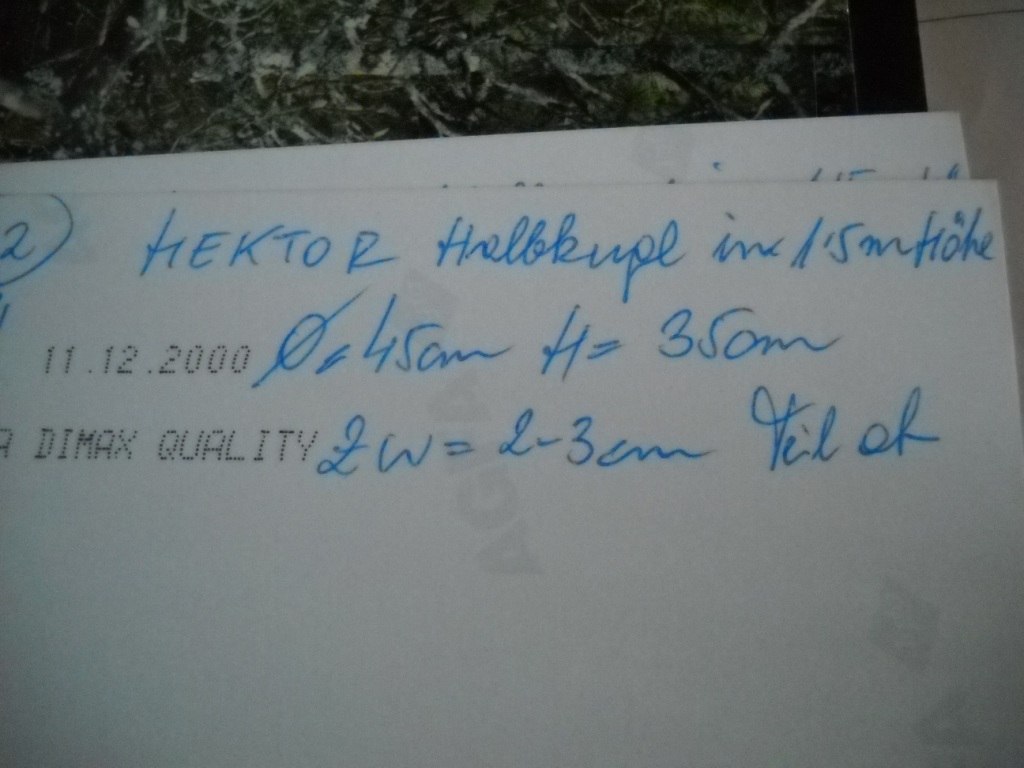 2) HEKTOR Halbkugel in 1.5m Höhe
11.12.2000 Ø = 45cm H = 35cm
A DIMAX QUALITY ZW = 2-3cm Teil